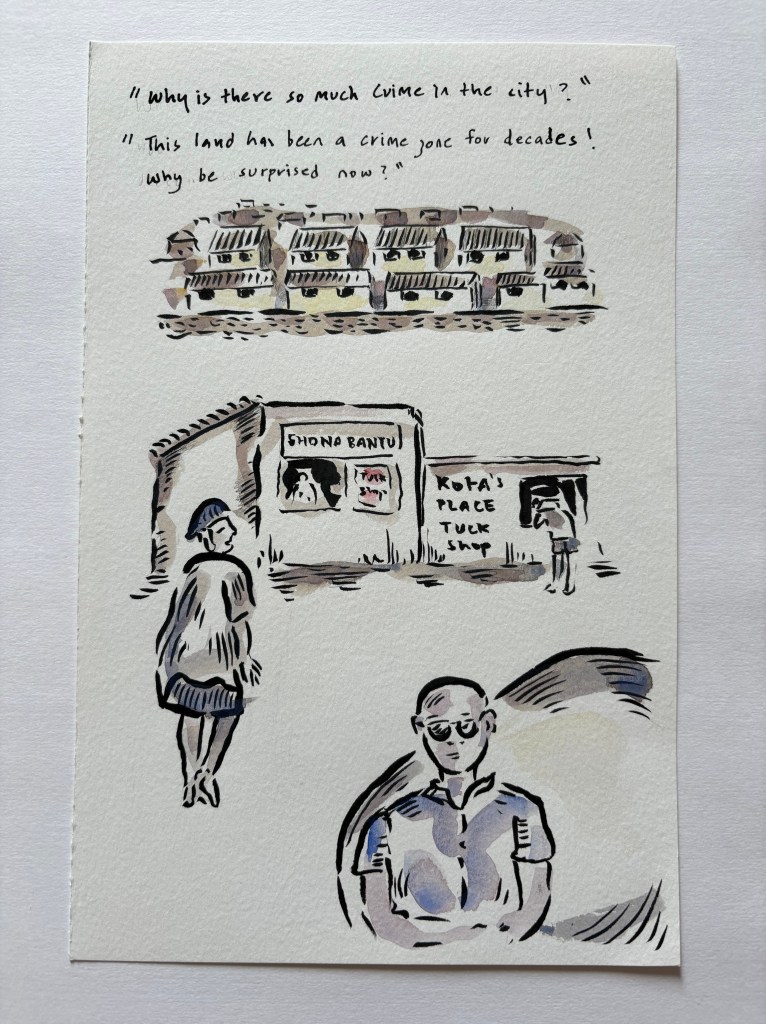 "Why is there so much crime in the city?"
"This land has been a crime zone for decades!
Why be surprised now?"
SHONA BANTU
TUCK
SHOP
KOTA'S
PLACE
TUCK
Shop